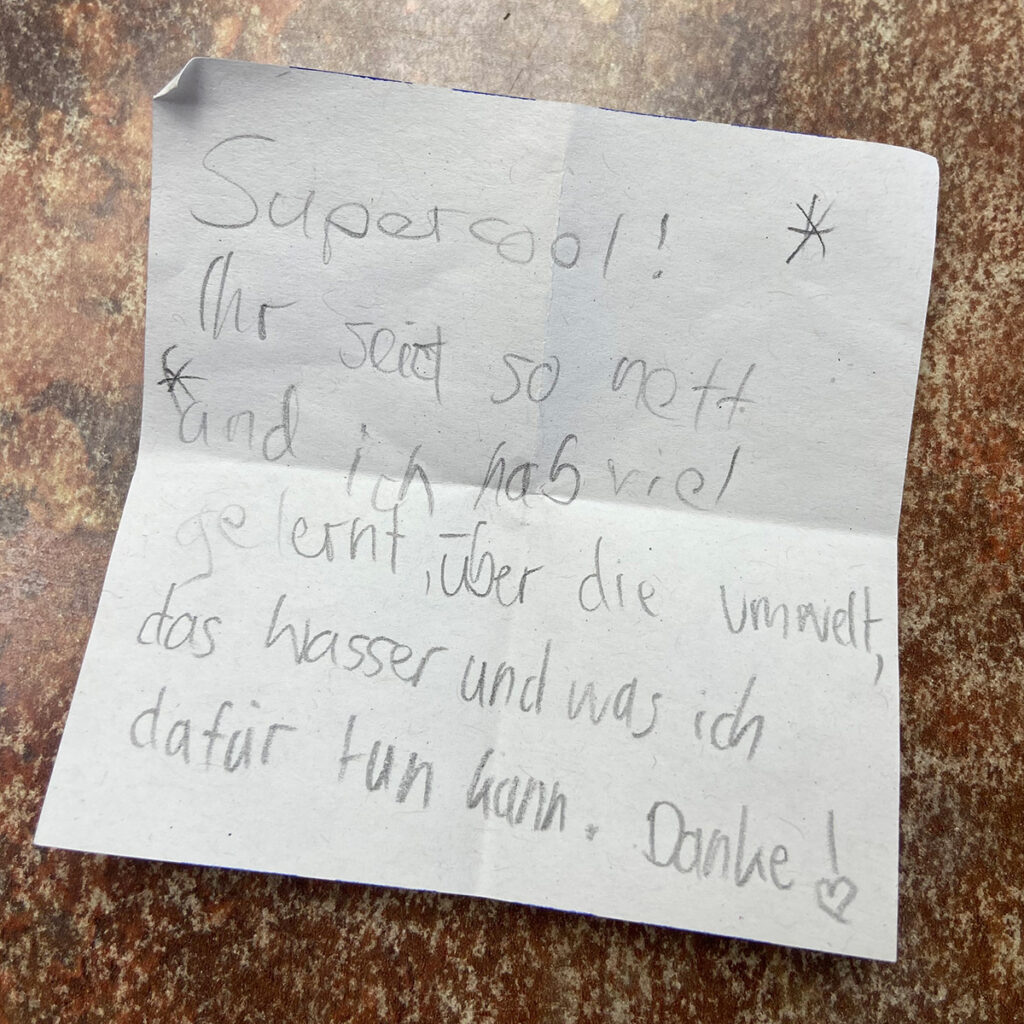 Supercool!
Ihr seid so nett
und ich hab viel
gelernt, über die umwelt,
das Wasser und was ich
dafür tun kann. Danke!